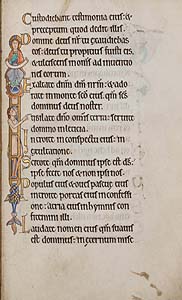 Custodiebant testimonia eius: &
preceptum quod dedit illis.
Domine deus nr̄ tu exaudiebas
eos: deus tu propitius fuisti eis,
& ulciscens in omīs ad inuentio
nes eorum.
Exaltate dnm̄ dm̄ nrm̄. & ado
rate in monte sc̄o eius: qm̄ sc̄s
dominus deus noster.
Iubilate dn̄o omīs terra: seruite
domino in leticia.
Introite in conspectu eius: in
exultatione.
Scitote qm̄ dominus ipse est ds̄:
ipse fecit nos & non ipsi nos.
Populus eius & oues pascue eius:
introite portas eius in confessi
one: atria eius in hymnis con
fitemini illi.
Laudate nomen eius qm̄ suauis
est dominus: in eternum mise